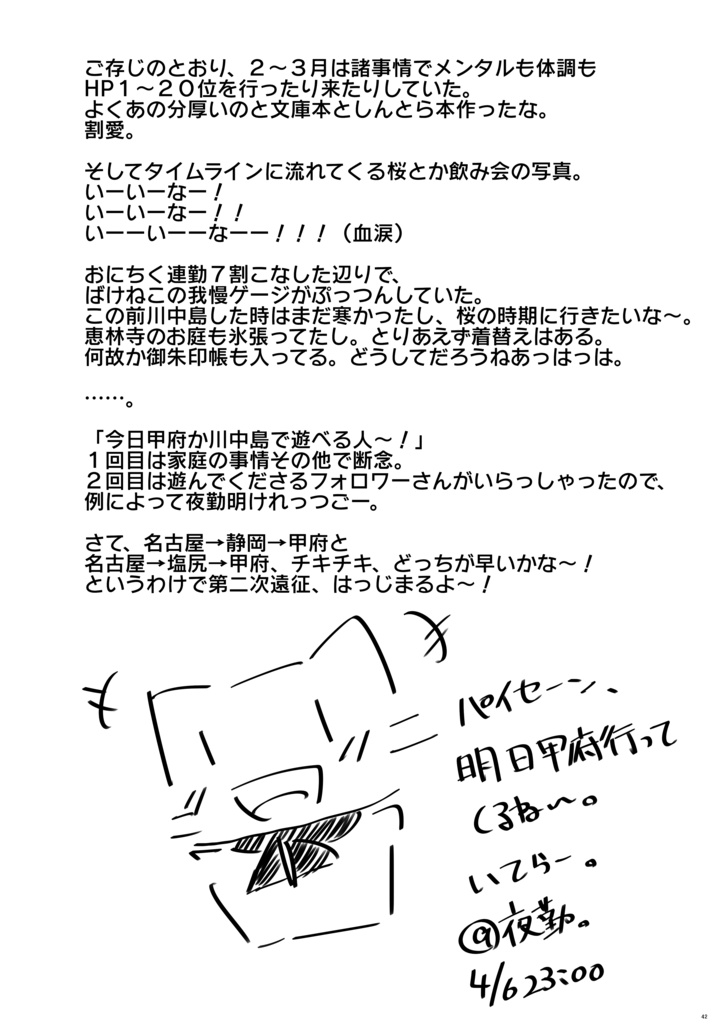 ご存じのとおり、２～３月は諸事情でメンタルも体調も
HP１～２０位を行ったり来たりしていた。
よくあの分厚いのと文庫本としんとら本作ったな。
割愛。
そしてタイムラインに流れてくる桜とか飲み会の写真。
いーいーなー！
いーいーなー！！
いーーいーーなーー！！！（血涙）
おにちく連勤７割こなした辺りで、
ばけねこの我慢ゲージがぷっつんしていた。
この前川中島した時はまだ寒かったし、桜の時期に行きたいな～。
恵林寺のお庭も氷張ってたし。とりあえず着替えはある。
何故か御朱印帳も入ってる。どうしてだろうねあっはっは。
……。
「今日甲府か川中島で遊べる人～！」
１回目は家庭の事情その他で断念。
２回目は遊んでくださるフォロワーさんがいらっしゃったので、
例によって夜勤明けれっつごー。
さて、名古屋→静岡→甲府と
名古屋→塩尻→甲府、チキチキ、どっちが早いかな～！
というわけで第二次遠征、はっじまるよ～！
パイセーン、
明日甲府行って
くるね～。
いてらー。
@夜勤。
4/6 23:00
42